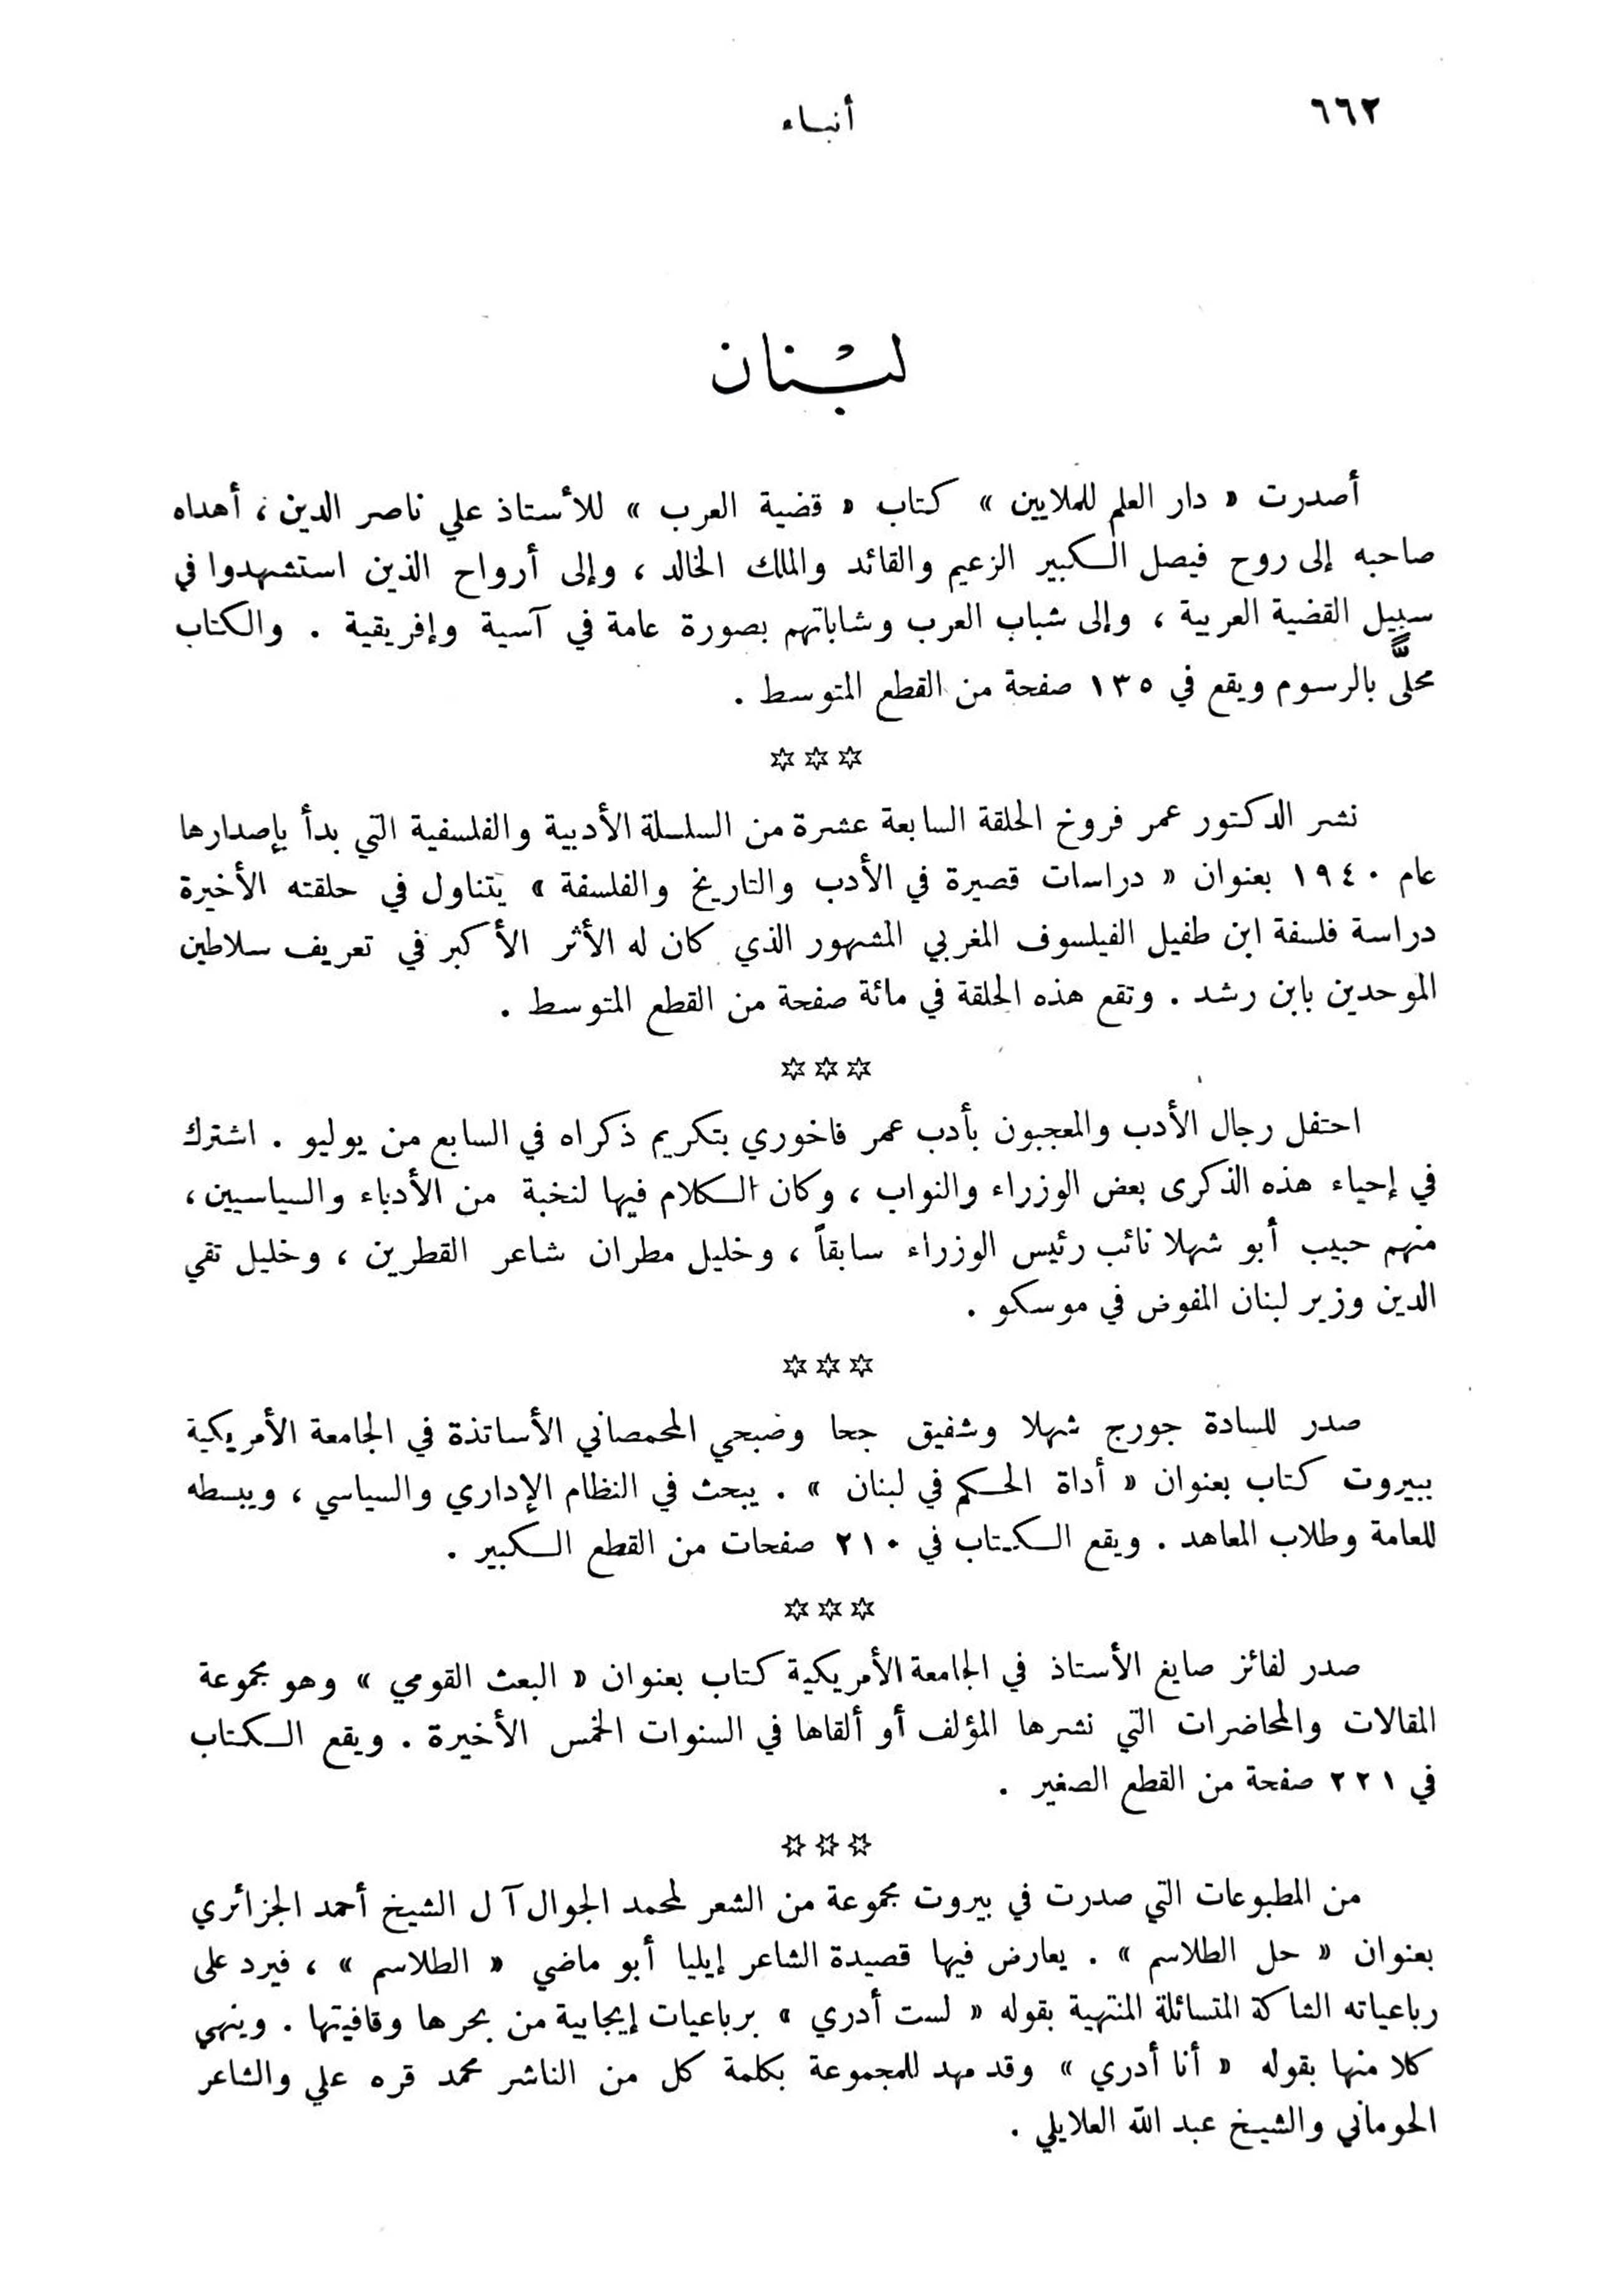 ٦٦٢
أنباء
لبْنان
أصدرت « دار العلم للملايين » كتاب « قضية العرب » للأستاذ علي ناصر الدين ، أهداه
صاحبه إلى روح فيصل الكبير الزعيم والقائد والملك الخالد ، وإلى أرواح الذين استشهدوا في
سبيل القضية العربية ، وإلى شباب العرب وشاباتهم بصورة عامة في آسية وإفريقية . والكتاب
محلىًّ بالرسوم ويقع في ١٣٥ صفحة من القطع المتوسط .
✡ ✡ ✡
نشر الدكتور عمر فروخ الحلقة السابعة عشرة من السلسلة الأدبية والفلسفية التي بدأ بإصدارها
عام ١٩٤٠ بعنوان « دراسات قصيرة في الأدب والتاريخ والفلسفة » يتناول في حلقته الأخيرة
دراسة فلسفة ابن طفيل الفيلسوف المغربي المشهور الذي كان له الأثر الأكبر في تعريف سلاطين
الموحدين بابن رشد . وتقع هذه الحلقة في مائة صفحة من القطع المتوسط .
✡ ✡ ✡
احتفل رجال الأدب والمعجبون بأدب عمر فاخوري بتكريم ذكراه في السابع من يوليو . اشترك
في إحياء هذه الذكرى بعض الوزراء والنواب ، وكان الكلام فيها لنخبة من الأدباء والسياسيين ،
منهم حبيب أبو شهلا نائب رئيس الوزراء سابقاً ، وخليل مطران شاعر القطرين ، وخليل تقي
الدين وزير لبنان المفوض في موسكو .
✡ ✡ ✡
صدر للسادة جورج شهلا وشفيق جحا وصبحي المحمصاني الأساتذة في الجامعة الأمريكية
ببيروت كتاب بعنوان « أداة الحكم في لبنان » . يبحث في النظام الإداري والسياسي ، ويبسطه
للعامة وطلاب المعاهد . ويقع الكتاب في ٢١٠ صفحات من القطع الكبير .
✡ ✡ ✡
صدر لفائز صايغ الأستاذ في الجامعة الأمريكية كتاب بعنوان « البعث القومي » وهو مجموعة
المقالات والمحاضرات التي نشرها المؤلف أو ألقاها في السنوات الخمس الأخيرة . ويقع الكتاب
في ٢٢١ صفحة من القطع الصغير .
✡ ✡ ✡
من المطبوعات التي صدرت في بيروت مجموعة من الشعر لمحمد الجوال آل الشيخ أحمد الجزائري
بعنوان « حل الطلاسم » . يعارض فيها قصيدة الشاعر إيليا أبو ماضي « الطلاسم » ، فيرد على
رباعياته الشاكة المتسائلة المنتهية بقوله « لست أدري » برباعيات إيجابية من بحرها وقافيتها . وينهي
كلا منها بقوله « أنا أدري » وقد مهد للمجموعة بكلمة كل من الناشر محمد قره علي والشاعر
الحوماني والشيخ عبد الله العلايلي .